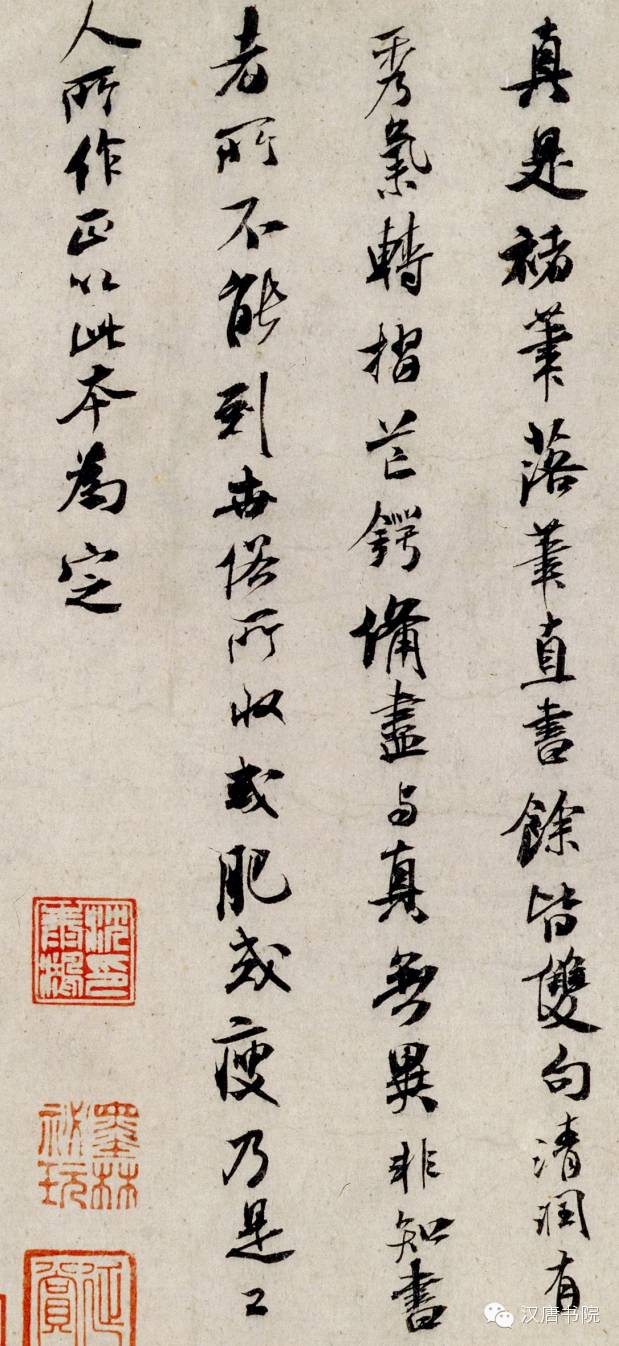 真是褚筆落筆直書餘皆雙勾清潤有
秀氣轉摺芒鍔備盡与真無異非知書
者所不能到世俗所收或肥或瘦乃是工
人所作正以此本為定
墨林祕玩
汉唐书院